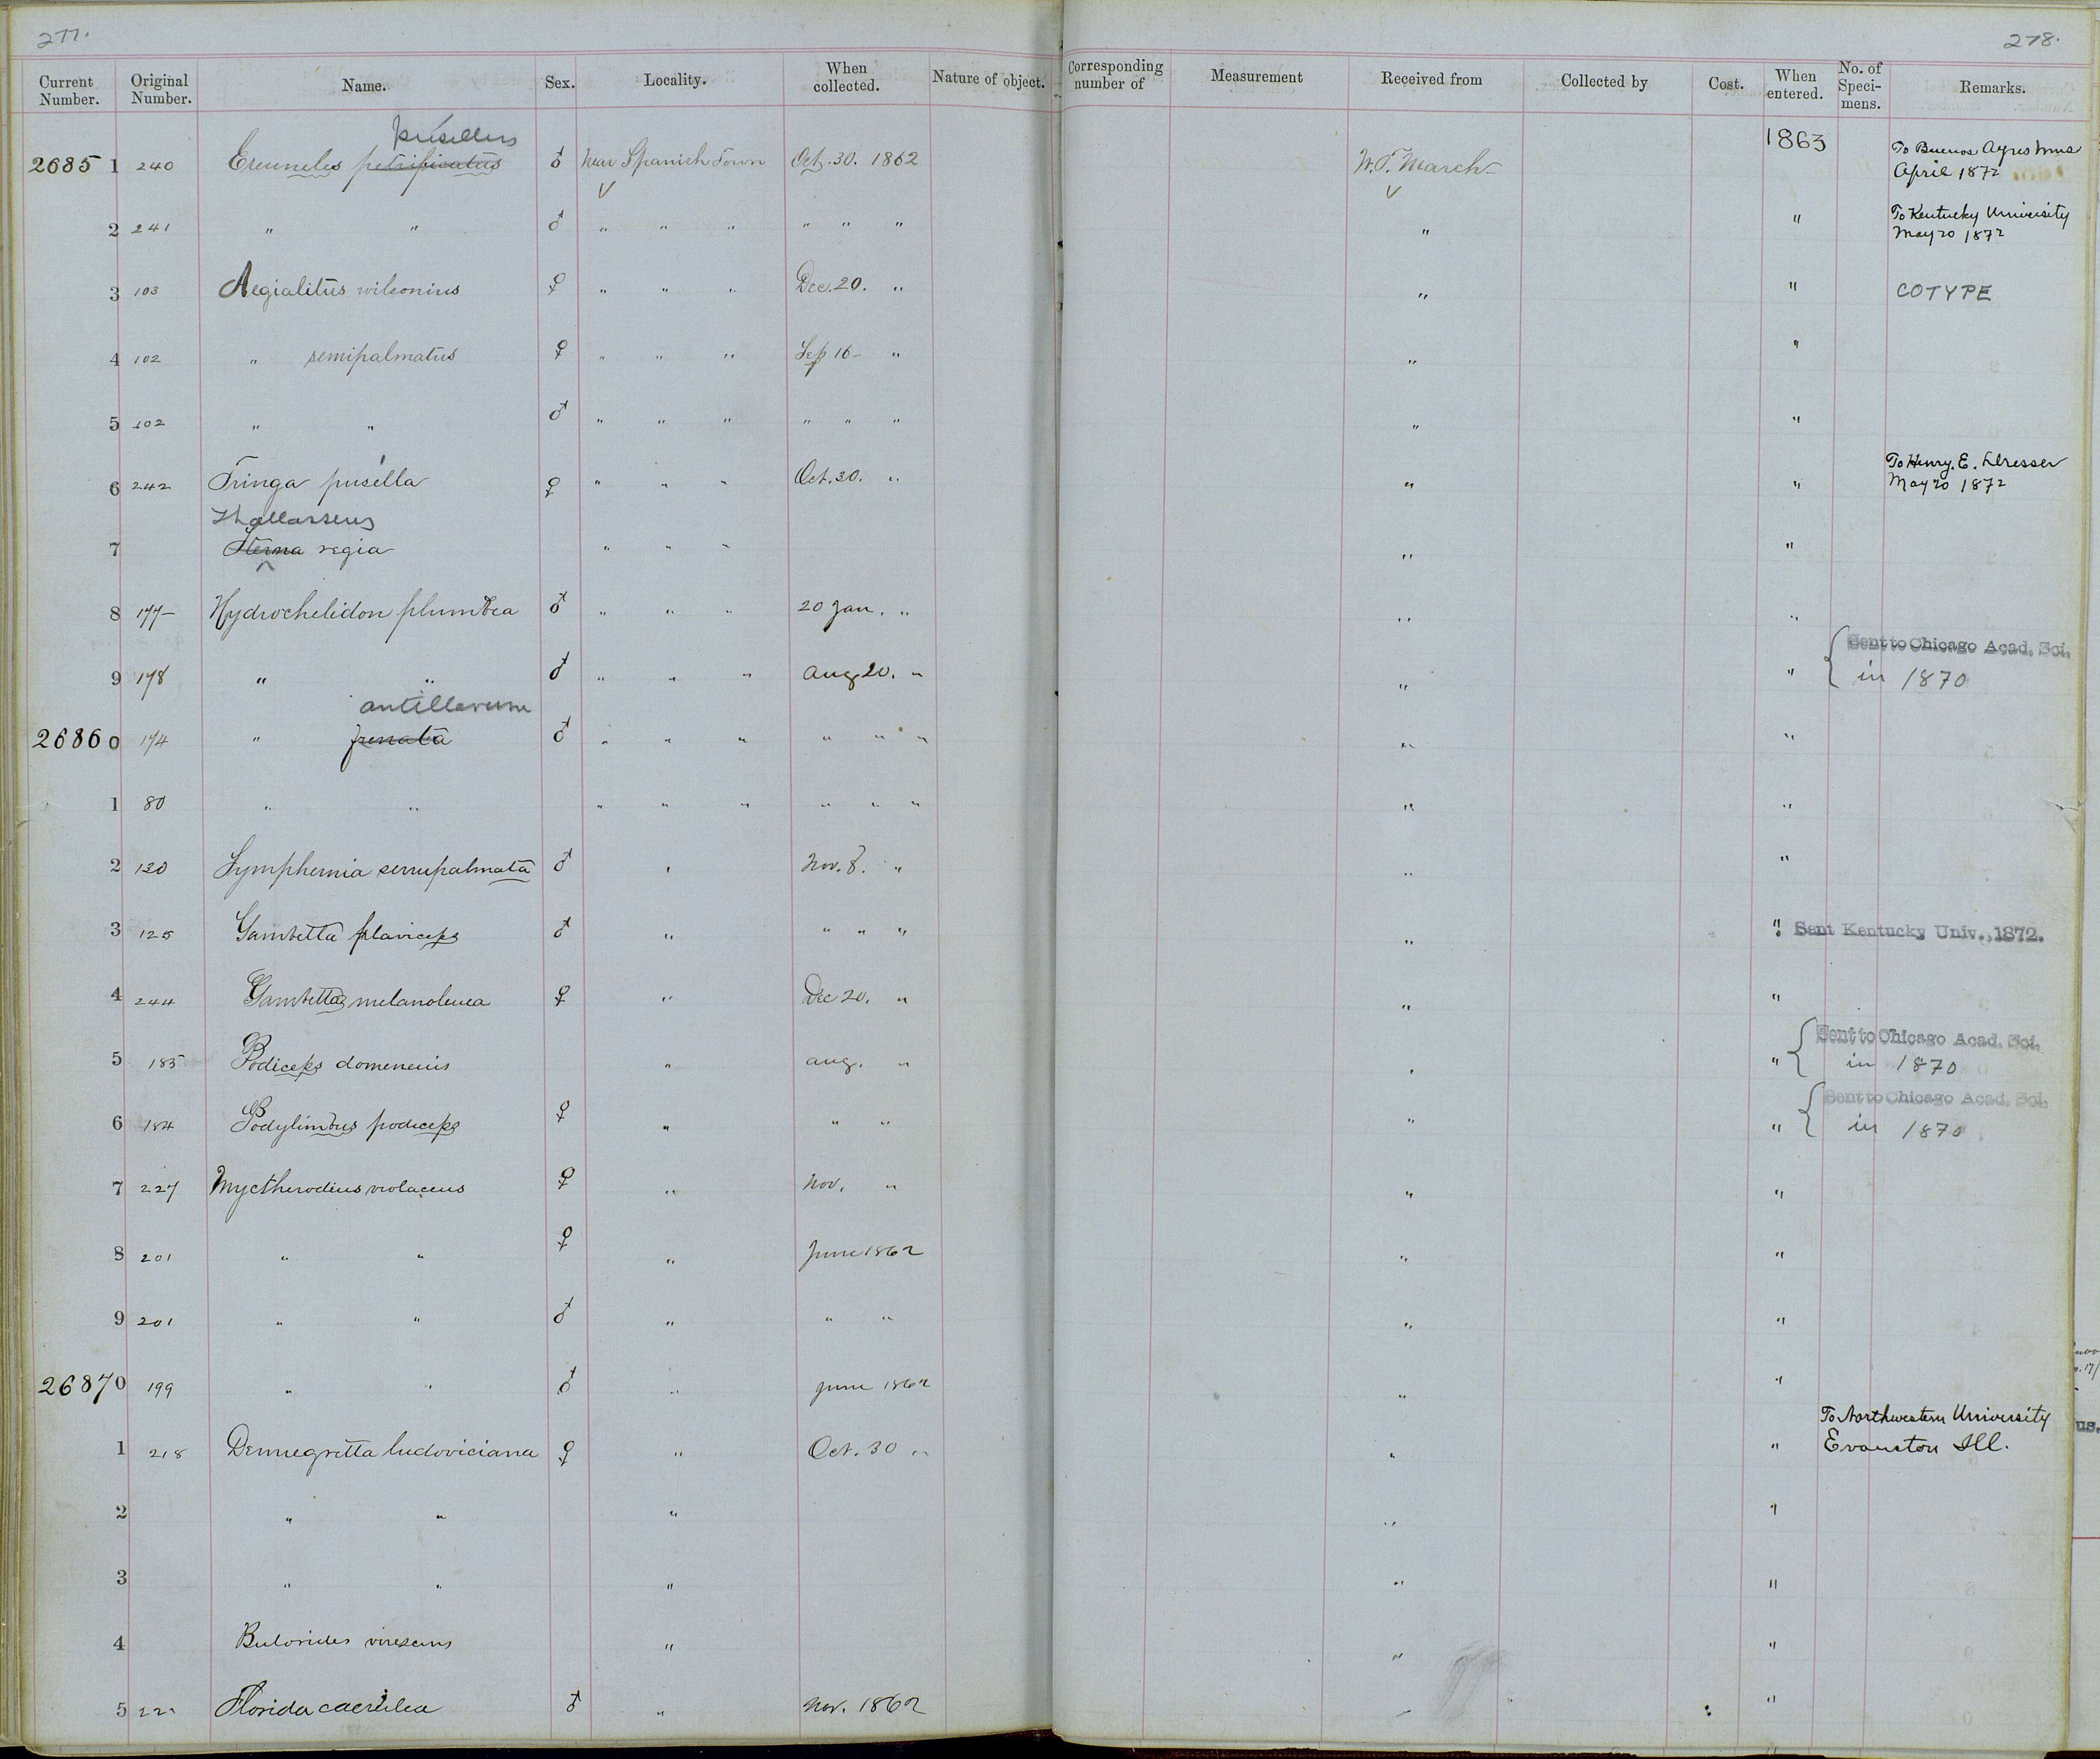 277.
278.
Current Number. Original Number. Name. Sex. Locality. When collected. Nature of object. Corresponding number of Measurement Received from Collected by Cost. When entered. No. of Specimens. Remarks.
pusillus
26851 240 Ereunetes petrificatus ♂ Near Spanish Town Oct. 30. 1862 W. T. March 1863 To Buenos Ayres Mus April 1872
2 241 " " ♂ " " " " " " " " To Kentucky University May 20 1872
3 103 Aegialitus wilsonius ♀ " " " Dec. 20. " " " COTYPE
4 102 " semipalmatus ♀ " " " Sep 16 - " " "
5 102 " " ♂ " " " " " " " "
6 242 Tringa pusilla ♀ " " " Oct. 30. " " " To Henry. E. Dresser May 20 1872
Thallasseus
7 Sterna regia " " " " "
8 177- Hydrochelidon plumbea ♂ " " " 20 Jan. " " "
9 178 " " ♂ " " " Aug 20. " " " Sent to Chicago Acad. Sci. in 1870
antillarum
26860 174 " frenata ♂ " " " " " " " "
1 80 " " " " " " " " " "
2 130 Symphemia semipalmata ♂ " Nov. 8. " " "
3 125 Gambetta flavipes ♂ " " " " " " Sent Kentucky Univ., 1872.
4 244 Gambetta melanoleuca ♀ " Dec 20. " " "
5 185 Podiceps domenicus " Aug. " " " Sent to Chicago Acad. Sci. in 1870
6 184 Podylimbus podiceps ♀ " " " " " Sent to Chicago Acad. Sci. in 1870
7 227 Myctherodius violaceus ♀ " Nov. " " "
8 201 " " ♀ " June 1862 " "
9 201 " " ♂ " " " " "
26870 199 " " ♂ " June 1862 " "
1 218 Demiegretta ludoviciana ♀ " Oct. 30 " " " To Northwestern University Evanston Ill.
2 " " " " "
3 " " " " "
4 Butorides virescens " " "
5 Florida caerulea ♂ " Nov. 1862 "